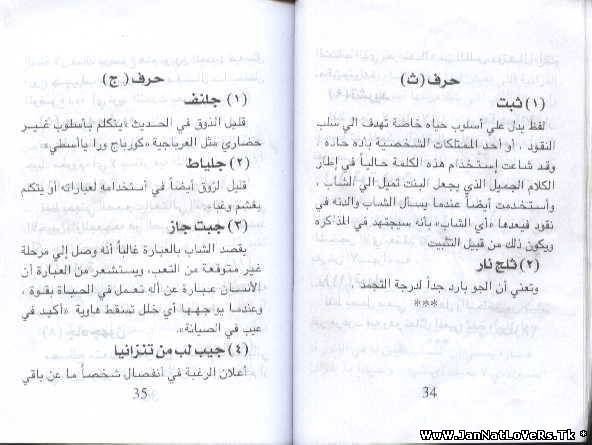 حرف (ث)
(١) ثبت
لفظ يدل علي أسلوب حياه خاصة تهدف الي سلب
النقود ، أو أحد الممتلكات الشخصية باده حاده ،
وقد شاعت إستخدام هذه الكلمة حالياً في إطار
الكلام الجميل الذي يجعل البنت تميل الي الشاب ،
وأستخدمت أيضاً عندما يسأل الشاب والدته في
نقود فيعدها «أي الشاب» بأنه سيجتهد في المذاكره
ويكون ذلك من قبيل التثبيت
(٢) ثلج نار
وتعني أن الجو بارد جداً لدرجة التجمد
***
34
حرف (ج)
(١) جلنف
قليل الذوق في الحديث ،يتكلم بأسلوب غير
حضاري مثل العربجية «كورباج ورا ياأسطي»
(٢) جلياط
قليل لزوق أيضاً في أستخدامه لعباراته أو يتكلم
بغشم وغباء
(٣) جبت جاز
يقصد الشاب بالعبارة غالباً أنه وصل إلي مرحلة
غير متوقعة من التعب، ويستشعر من العبارة أن
الأنسان عبارة عن أله تعمل في الحياة بقوة ،
وعندما يواجهها أي خلل تسقط هاوية «أكيد في
عيب في الصيانة».
(٤) جيب لب من تنزانيا
أعلان الرغبة في أنفصال شخصاً ما عن باقي
35
WwW.JanNatLoVeRs.Tk *